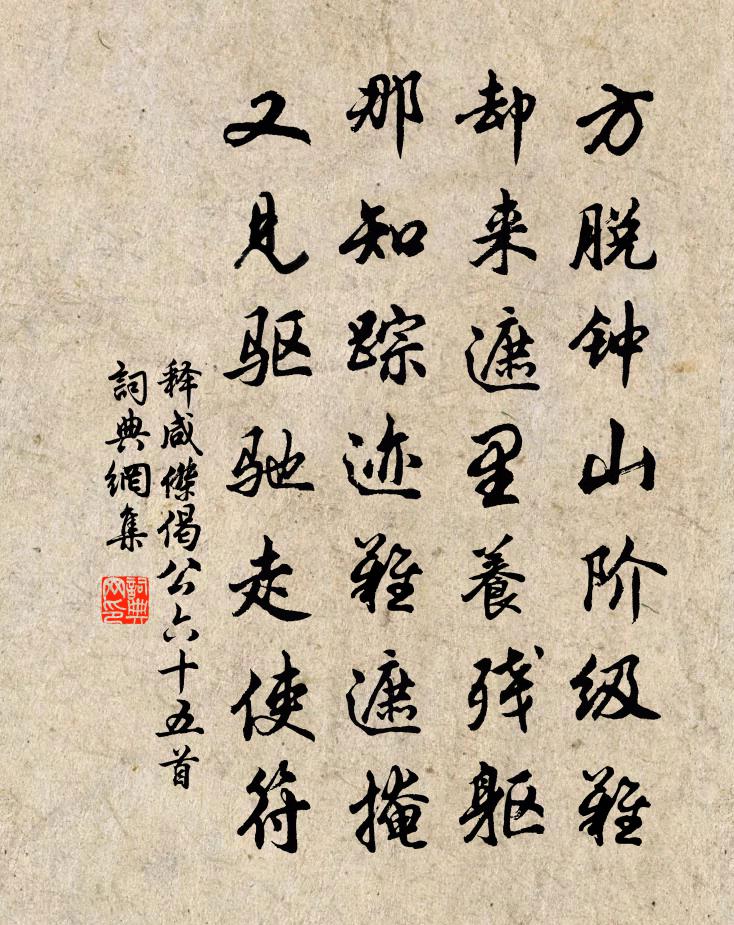 方脱钟山阶级难
却来遮里养残躯
那知踪迹难遮掩
又见驱驰走使符
释咸傑偈公六十五首
詞典網集
詞典网印